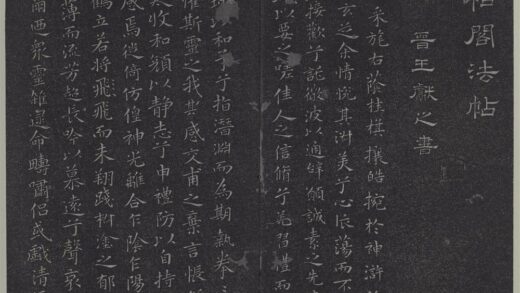 閣法帖
晉王獻之書
采旄右蔭桂旗攘皓捥於神滸
玄之余情悅其淑美兮心振蕩而不
接歡兮託微波以通辭願誠素之先
以要之嗟佳人之信脩兮羌習禮而
和兮指潛淵而為期執拳
懼斯靈之我欺感交甫之棄言悵
收和顏以靜志兮申禮防以自持
感焉徙倚仿偟神光離合乍陰乍陽
鶴立若將飛飛而未翔踐椒塗之郁
薄而流芳超長吟以慕遠兮聲哀
爾迺眾靈雜遝命疇嘯侶或戲清